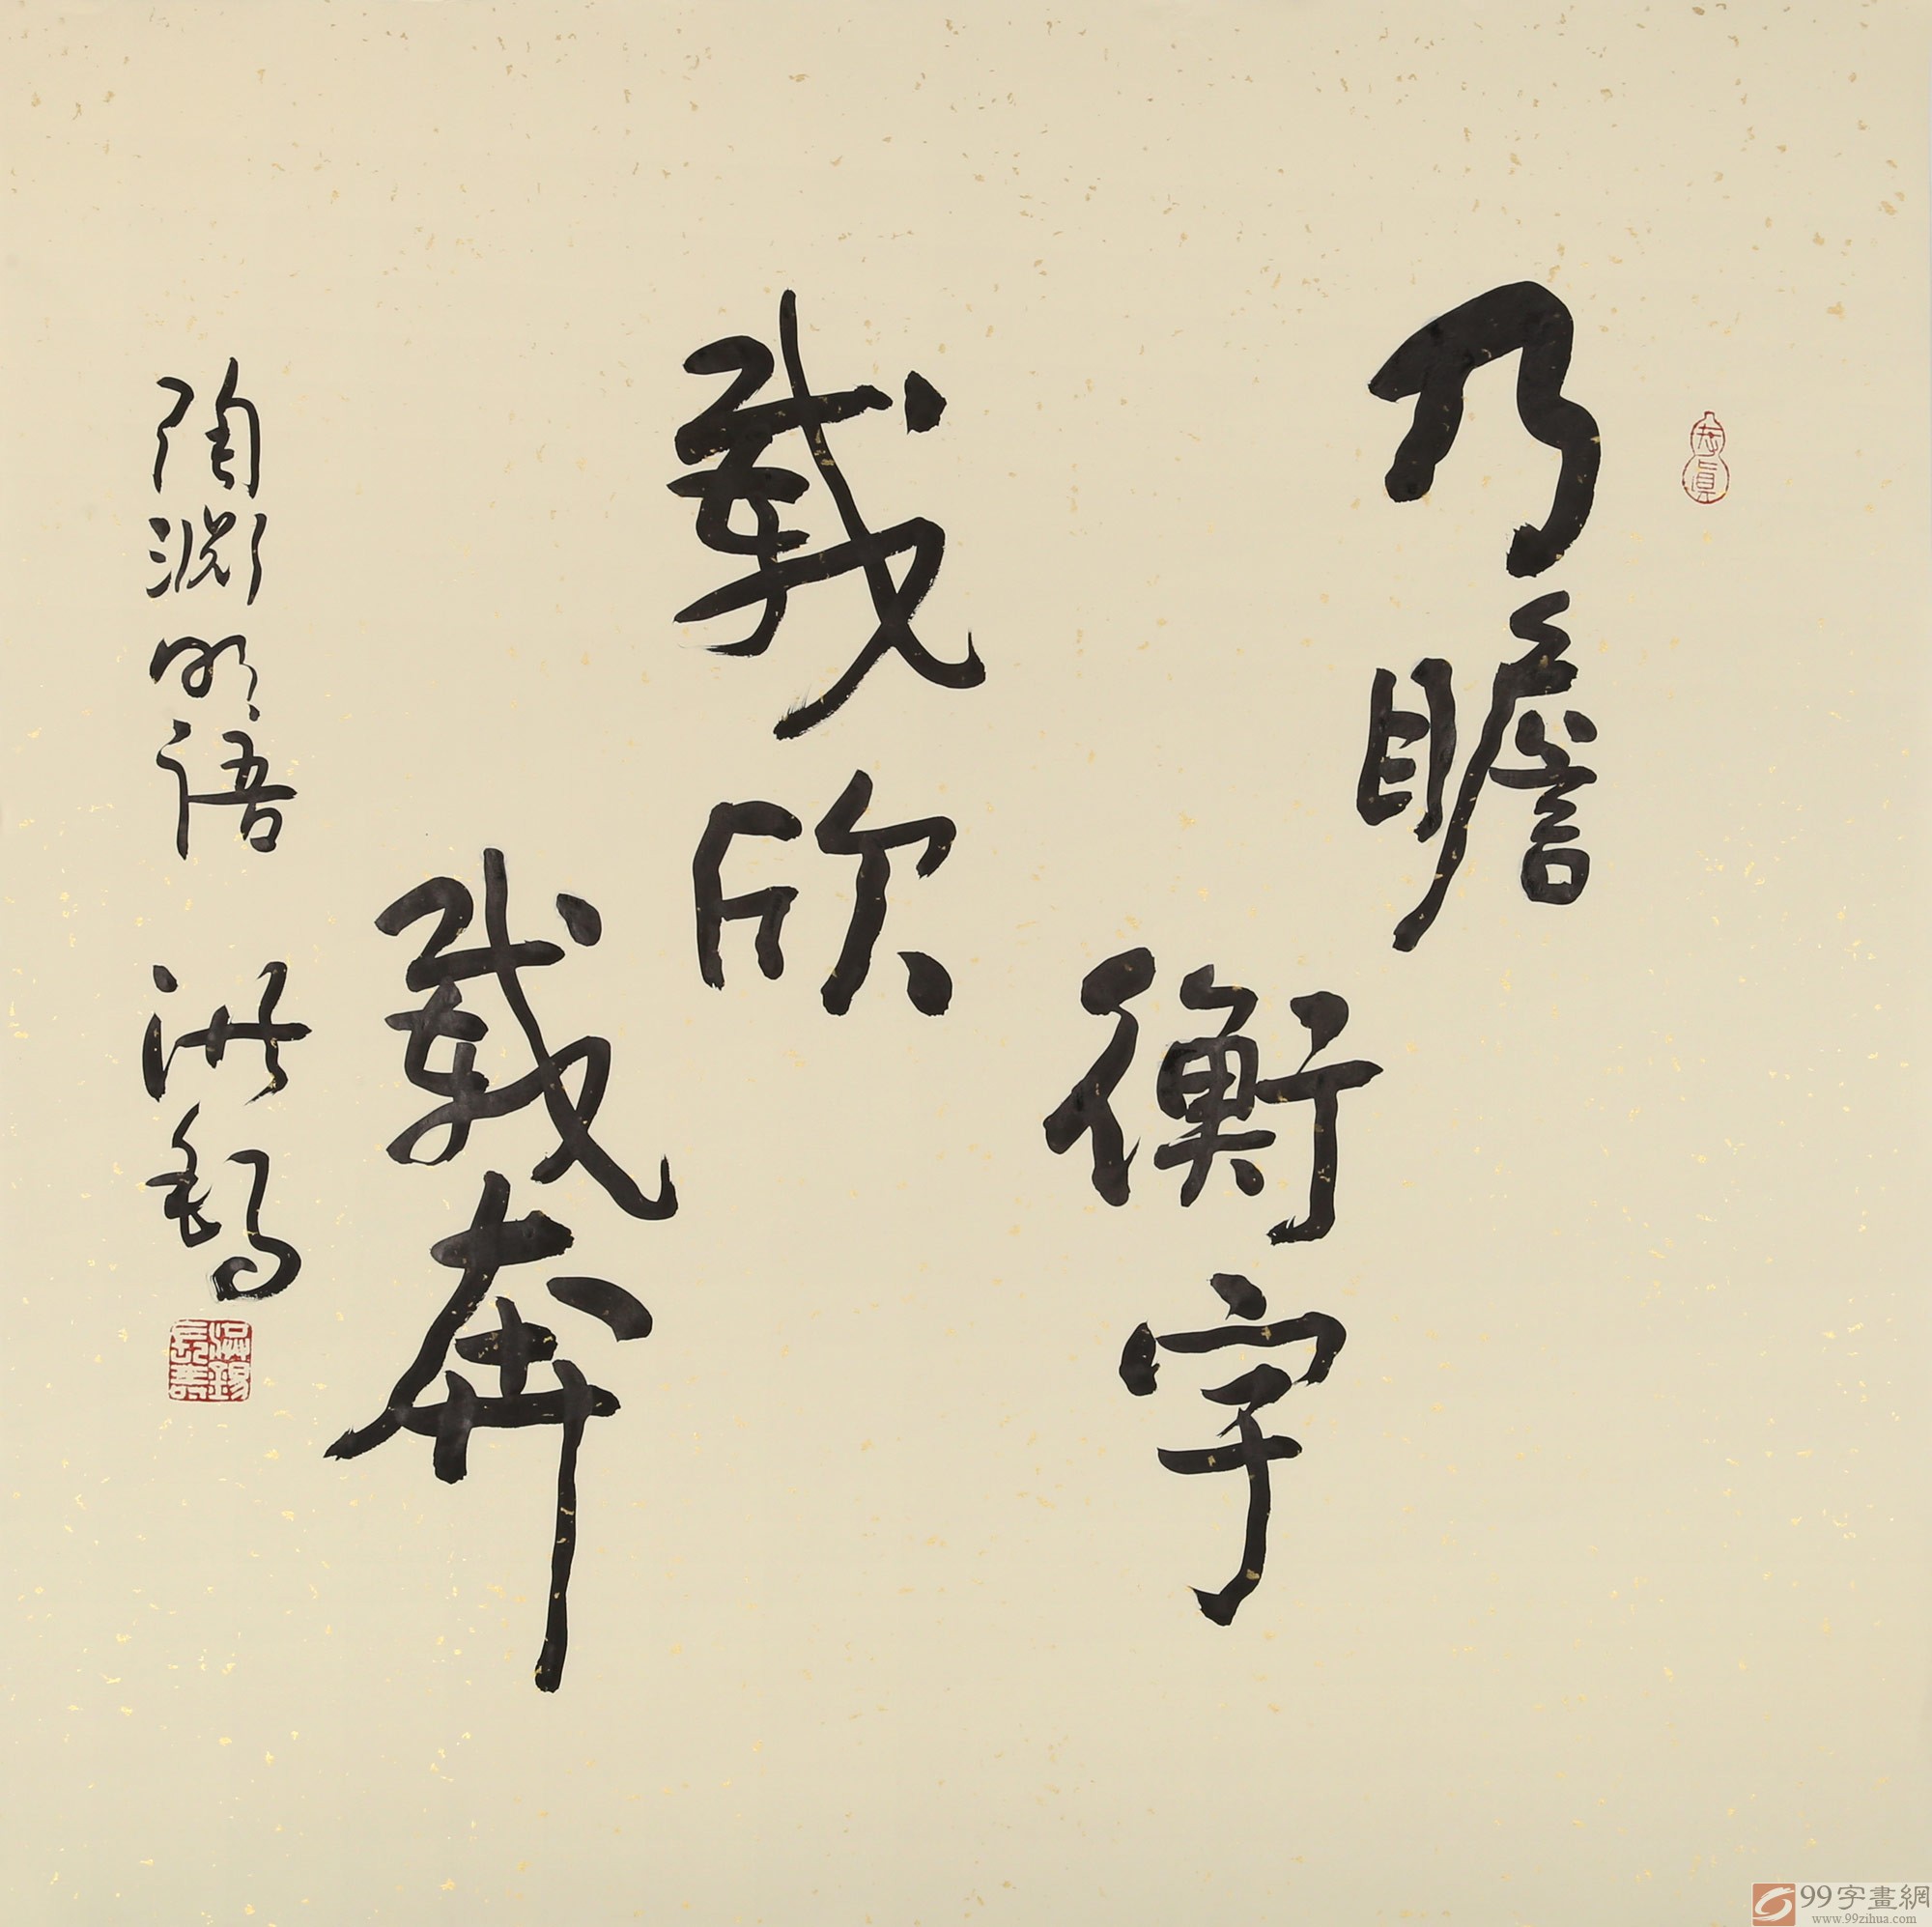 乃瞻
衡宇
载欣
载奔
陶渊明语
洪
99字畫網
www.99zihua.com